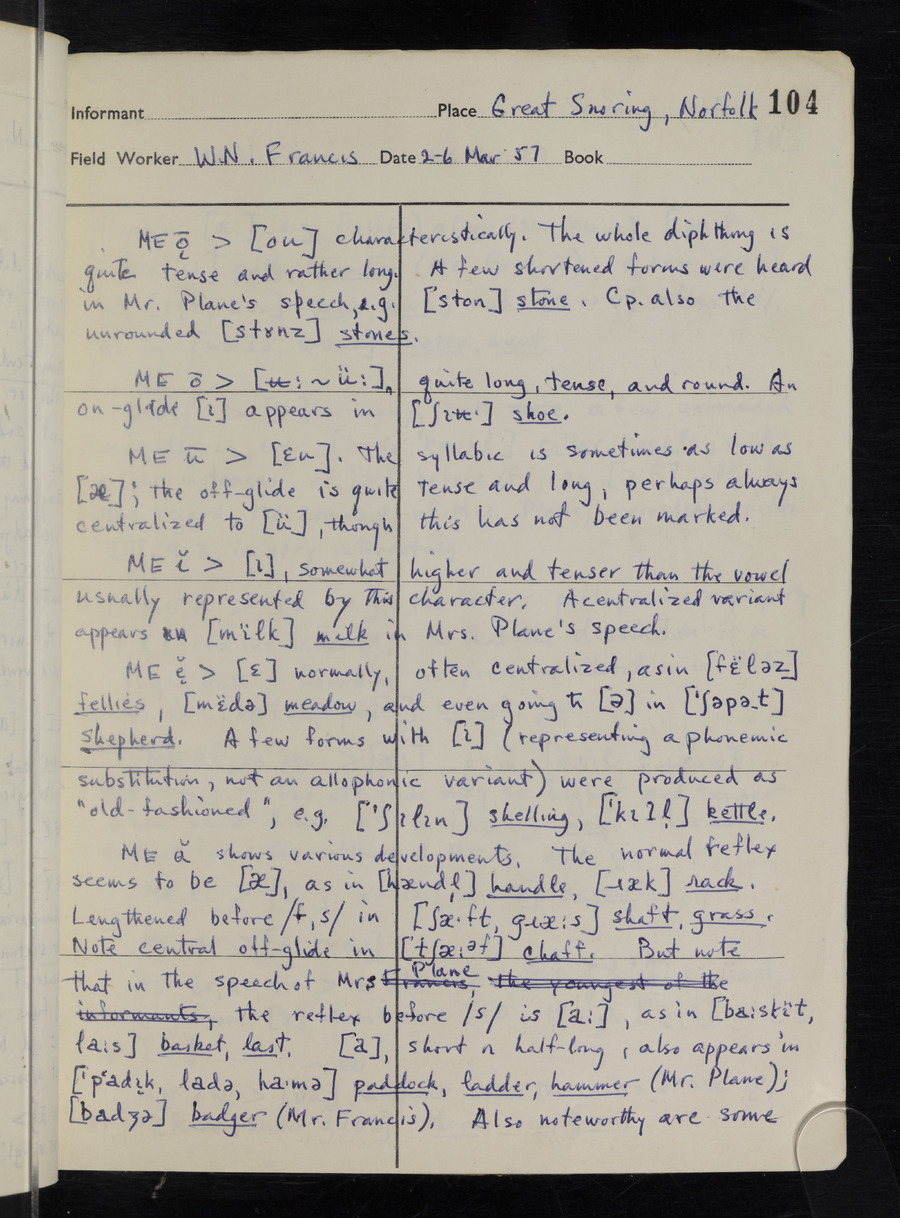 Informant Place Great Snoring, Norfolk 104
Field Worker W.N. Francis Date 2-6 Mar 57 Book
ME ǭ > [ou] characteristically. The whole diphthong is
quite tense and rather long. A few shortened forms were heard
in Mr. Plane's speech, e.g. ['ston] stone. Cp. also the
unrounded [stɤnz] stones.
ME ō > [ʉ: ~ ü:], quite long, tense, and round. An
on-glide [ɪ] appears in [ʃɪʉ·] shoe.
ME ū > [ɛu]. The syllabic is sometimes as low as
[æ]; the off-glide is quite tense and long, perhaps always
centralized to [ü], though this has not been marked.
ME ĭ > [ɪ], somewhat higher and tenser than the vowel
usually represented by this character. A centralized variant
appears in [mïlk] milk in Mrs. Plane's speech.
ME ę̆ > [ɛ] normally, often centralized, as in [fɛ̈ləz]
fellies, [mɛ̈də] meadow, and even going to [ə] in ['ʃəpə̠t]
shepherd. A few forms with [ɪ] (representing a phonemic
substitution, not an allophonic variant) were produced as
"old-fashioned", e.g. ['ʃɪlɪn] shelling, ['kɪʔl̩] kettle.
ME ă shows various developments. The normal reflex
seems to be [æ], as in [hændl̩] handle, [ɹæk] rack.
Lengthened before /f, s/ in [ʃæ·ft, gɹæ:s] shaft, grass.
Note central off-glide in [tʃæ:əf] chaff. But note
that in the speech of Mrs Francis, Plane the youngest of the
informants, the reflex before /s/ is [a:], as in [ba:skït,
la:s] basket, last. [a], short or half-long, also appears in
['pʻadɪ̞k, ladə, ha·mə] paddock, ladder, hammer (Mr. Plane);
[badʒə] badger (Mr. Francis). Also noteworthy are some